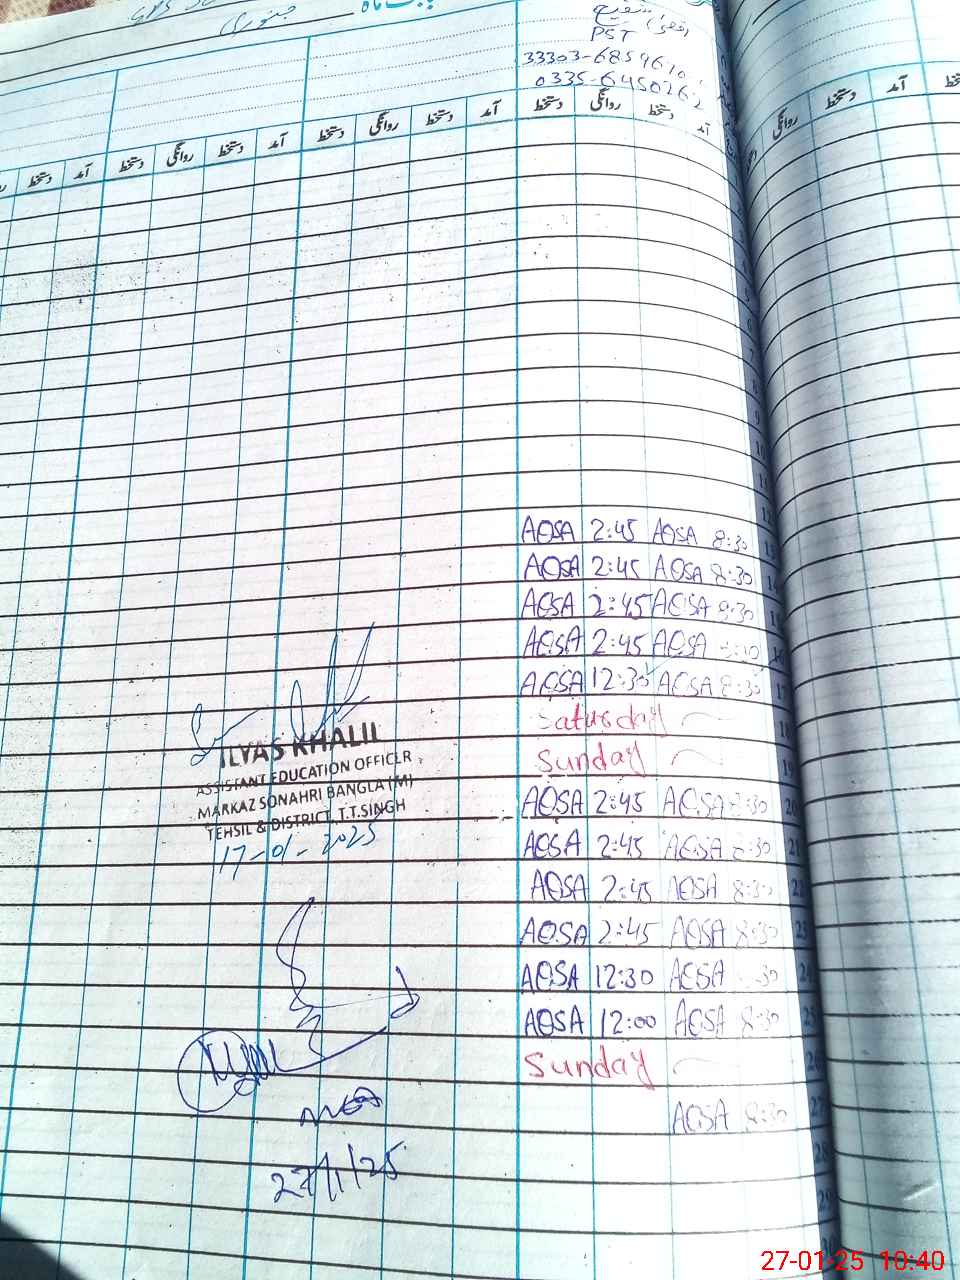 بابت ماہ جنوری
PST
33303-6859610
0335-6450262
آمد دستخط روانگی دستخط آمد دستخط روانگی دستخط آمد دستخط روانگی دستخط آمد دستخط
روانگی دستخط آمد
AQSA 2:45 AQSA 8:30 13
AQSA 2:45 AQSA 8:30 14
AQSA 2:45 AQSA 8:30 15
AQSA 2:45 AQSA 16
AQSA 12:30 AQSA 8:30 17
Saturday 18
Sunday 19
AQSA 2:45 AQSA 8:30 20
AQSA 2:45 AQSA 8:30 21
AQSA 2:45 AQSA 8:30 22
AQSA 2:45 AQSA 8:30 23
AQSA 12:30 AQSA :30 24
AQSA 12:00 AQSA 8:30 25
Sunday 26
AQSA 8:30 27
28
29
30
ILYAS KHALIL
ASSISTANT EDUCATION OFFICER
MARKAZ SONAHRI BANGLA (M)
TEHSIL & DISTRICT, T.T.SINGH
17-01-2025
27/1/25
27-01-25 10:40